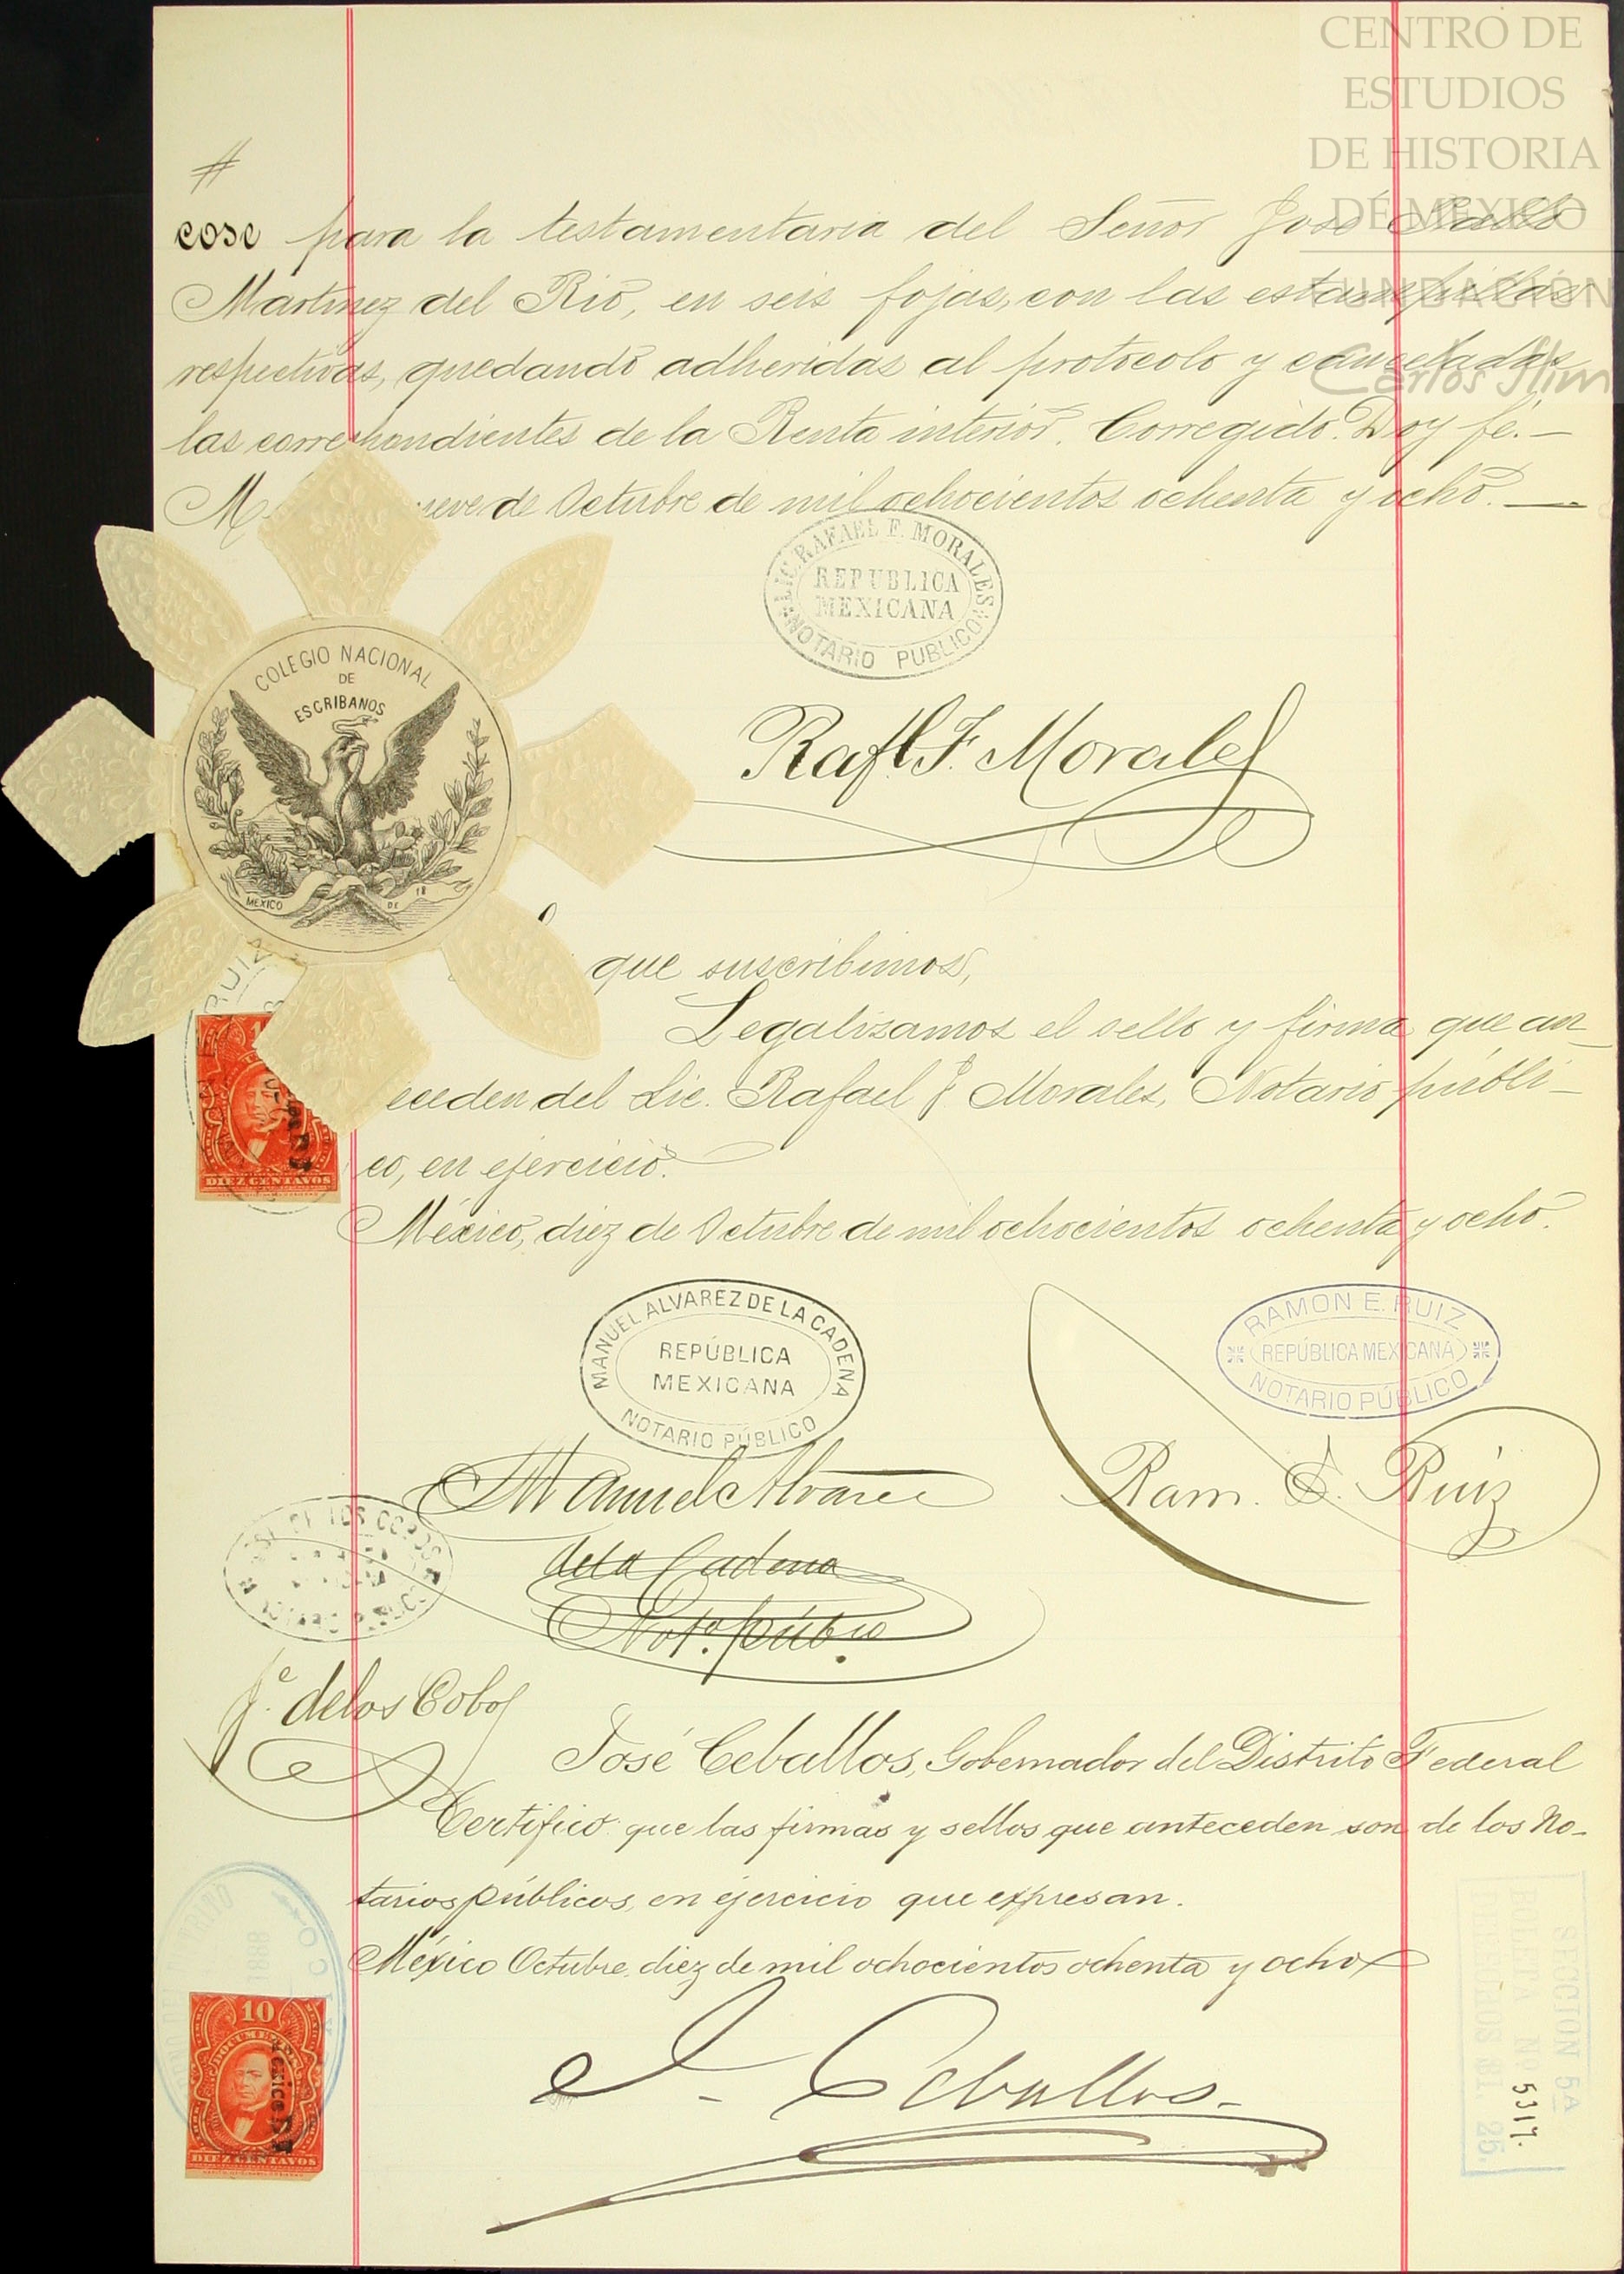 CENTRO DE
ESTUDIOS
DE HISTORIA
DE MÉXICO
FUNDACIÓN
Carlos Slim
#
cose para la testamentaria del Señor José Pablo
Martinez del Rio, en seis fojas, con las estampillas
respectivas, quedando adheridas al protocolo y canceladas
las correspondientes de la Renta interior. Corregido. Doy fé.—
M ueve de Octubre de mil ochocientos ochenta y ocho.—
LIC. RAFAEL F. MORALES
REPUBLICA
MEXICANA
NOTARIO PUBLICO
COLEGIO NACIONAL
DE
ESCRIBANOS
MEXICO DE 18
Rafl. F. Morales
que suscribimos,
Legalizamos el sello y firma que an-
eceden del Lic. Rafael F. Morales, Notario públi-
co, en ejercicio.
RUIZ
DIEZ CENTAVOS
México, diez de Octubre de mil ochocientos ochenta y ocho.
MANUEL ALVAREZ DE LA CADENA
REPÚBLICA
MEXICANA
NOTARIO PÚBLICO
RAMON E. RUIZ
REPÚBLICA MEXICANA
NOTARIO PÚBLICO
Manuel Alvarez
de la Cadena
Noto. púbco
Ram. E. Ruiz
DE LOS COBOS
Je. de los Cobos
José Ceballos, Gobernador del Distrito Federal
Certifico: que las firmas y sellos que anteceden son de los No-
tarios públicos, en ejercicio que expresan.
México Octubre diez de mil ochocientos ochenta y ocho
1888
10
DOCUMENTOS
DIEZ CENTAVOS
J. Ceballos.
SECCION 5A
BOLETA No. 5317.
DERECHOS $1. 25.